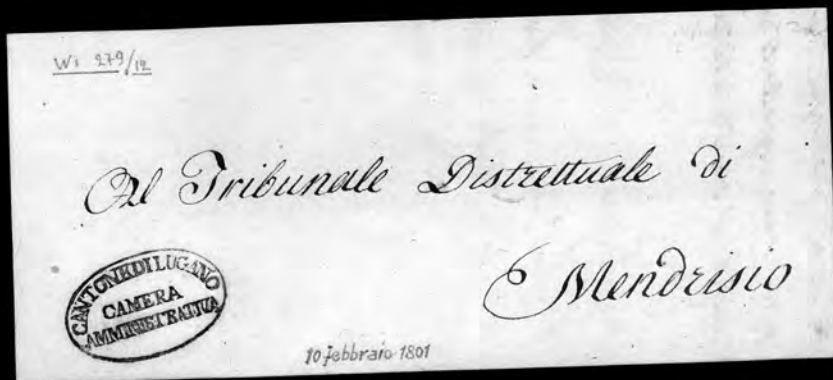 Wi 279/12
Al Tribunale Distrettuale di
Mendrisio
CANTONE DI LUGANO
CAMERA
AMMINISTRATIVA
10 febbraio 1801